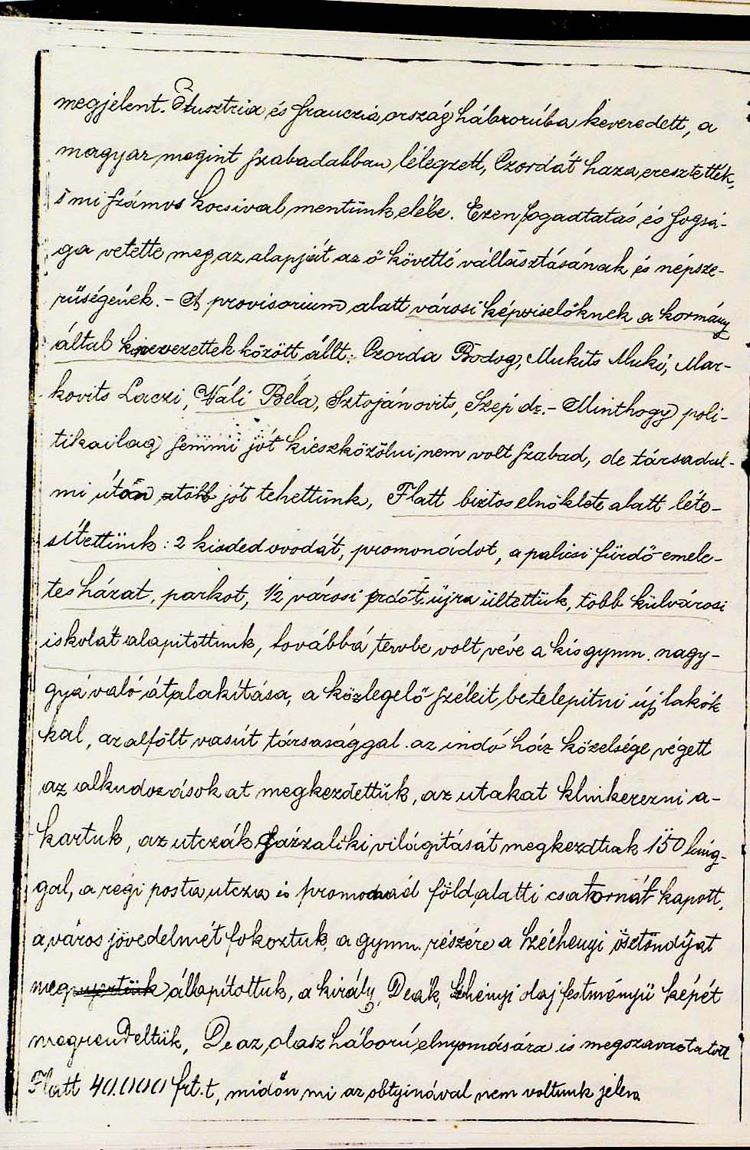 megjelent. Ausztria és francziaország háborúba keveredett, a
magyar megint szabadabban lélegzett, Czordát haza eresztették,
s mi számos kocsival mentünk elébe. Ezen fogadtatás és fogsá-
ga vetette meg az alapját az ő követté vállásztásának és népsze-
rűségének. – A provisorium alatt városi képviselőknek a kormány
által kinevezettek között állt: Czorda Bodog, Mukits Muki, Mar-
kovits Laczi, Váli Béla, Sztojánovits, Szép dr. – Minthogy poli-
tikailag semmi jót kieszközölni nem volt szabad, de társadal-
mi úton több jót tehettünk, Flatt biztos elnöklete alatt léte-
sítettünk: 2 kisdedovodát, promonádot, a palicsi fürdő emele-
tes házat, parkot, 1/2 városi erdőt újra ültettük, több külvárosi
iskolát alapitottunk, továbbá tervbe volt véve a kis gymn. nagy-
gyá való átalakítása, a közlegelő széleit betelepitni új lakók
kal, az alfölt vasút társasággal az indó ház közelsége végett
az alkudozásokat megkezdettük, az utakat klinkerezni a-
kartuk, az utczák gázzali kivilágitását megkezdtük 150 láng-
gal, a regi posta utcza és promonád föld alatti csatornát kapott,
a város jövedelmét fokoztuk, a gymn. részére a Széchenyi ösztöndíjat
megállapítottuk, a király, Deák, Széhényi olajfestményü képét
megrendeltük, De az olasz háború elnyomására is megszavaztatott
Flatt 40.000 frt.t, midőn mi az obtyinával nem voltunk jelen